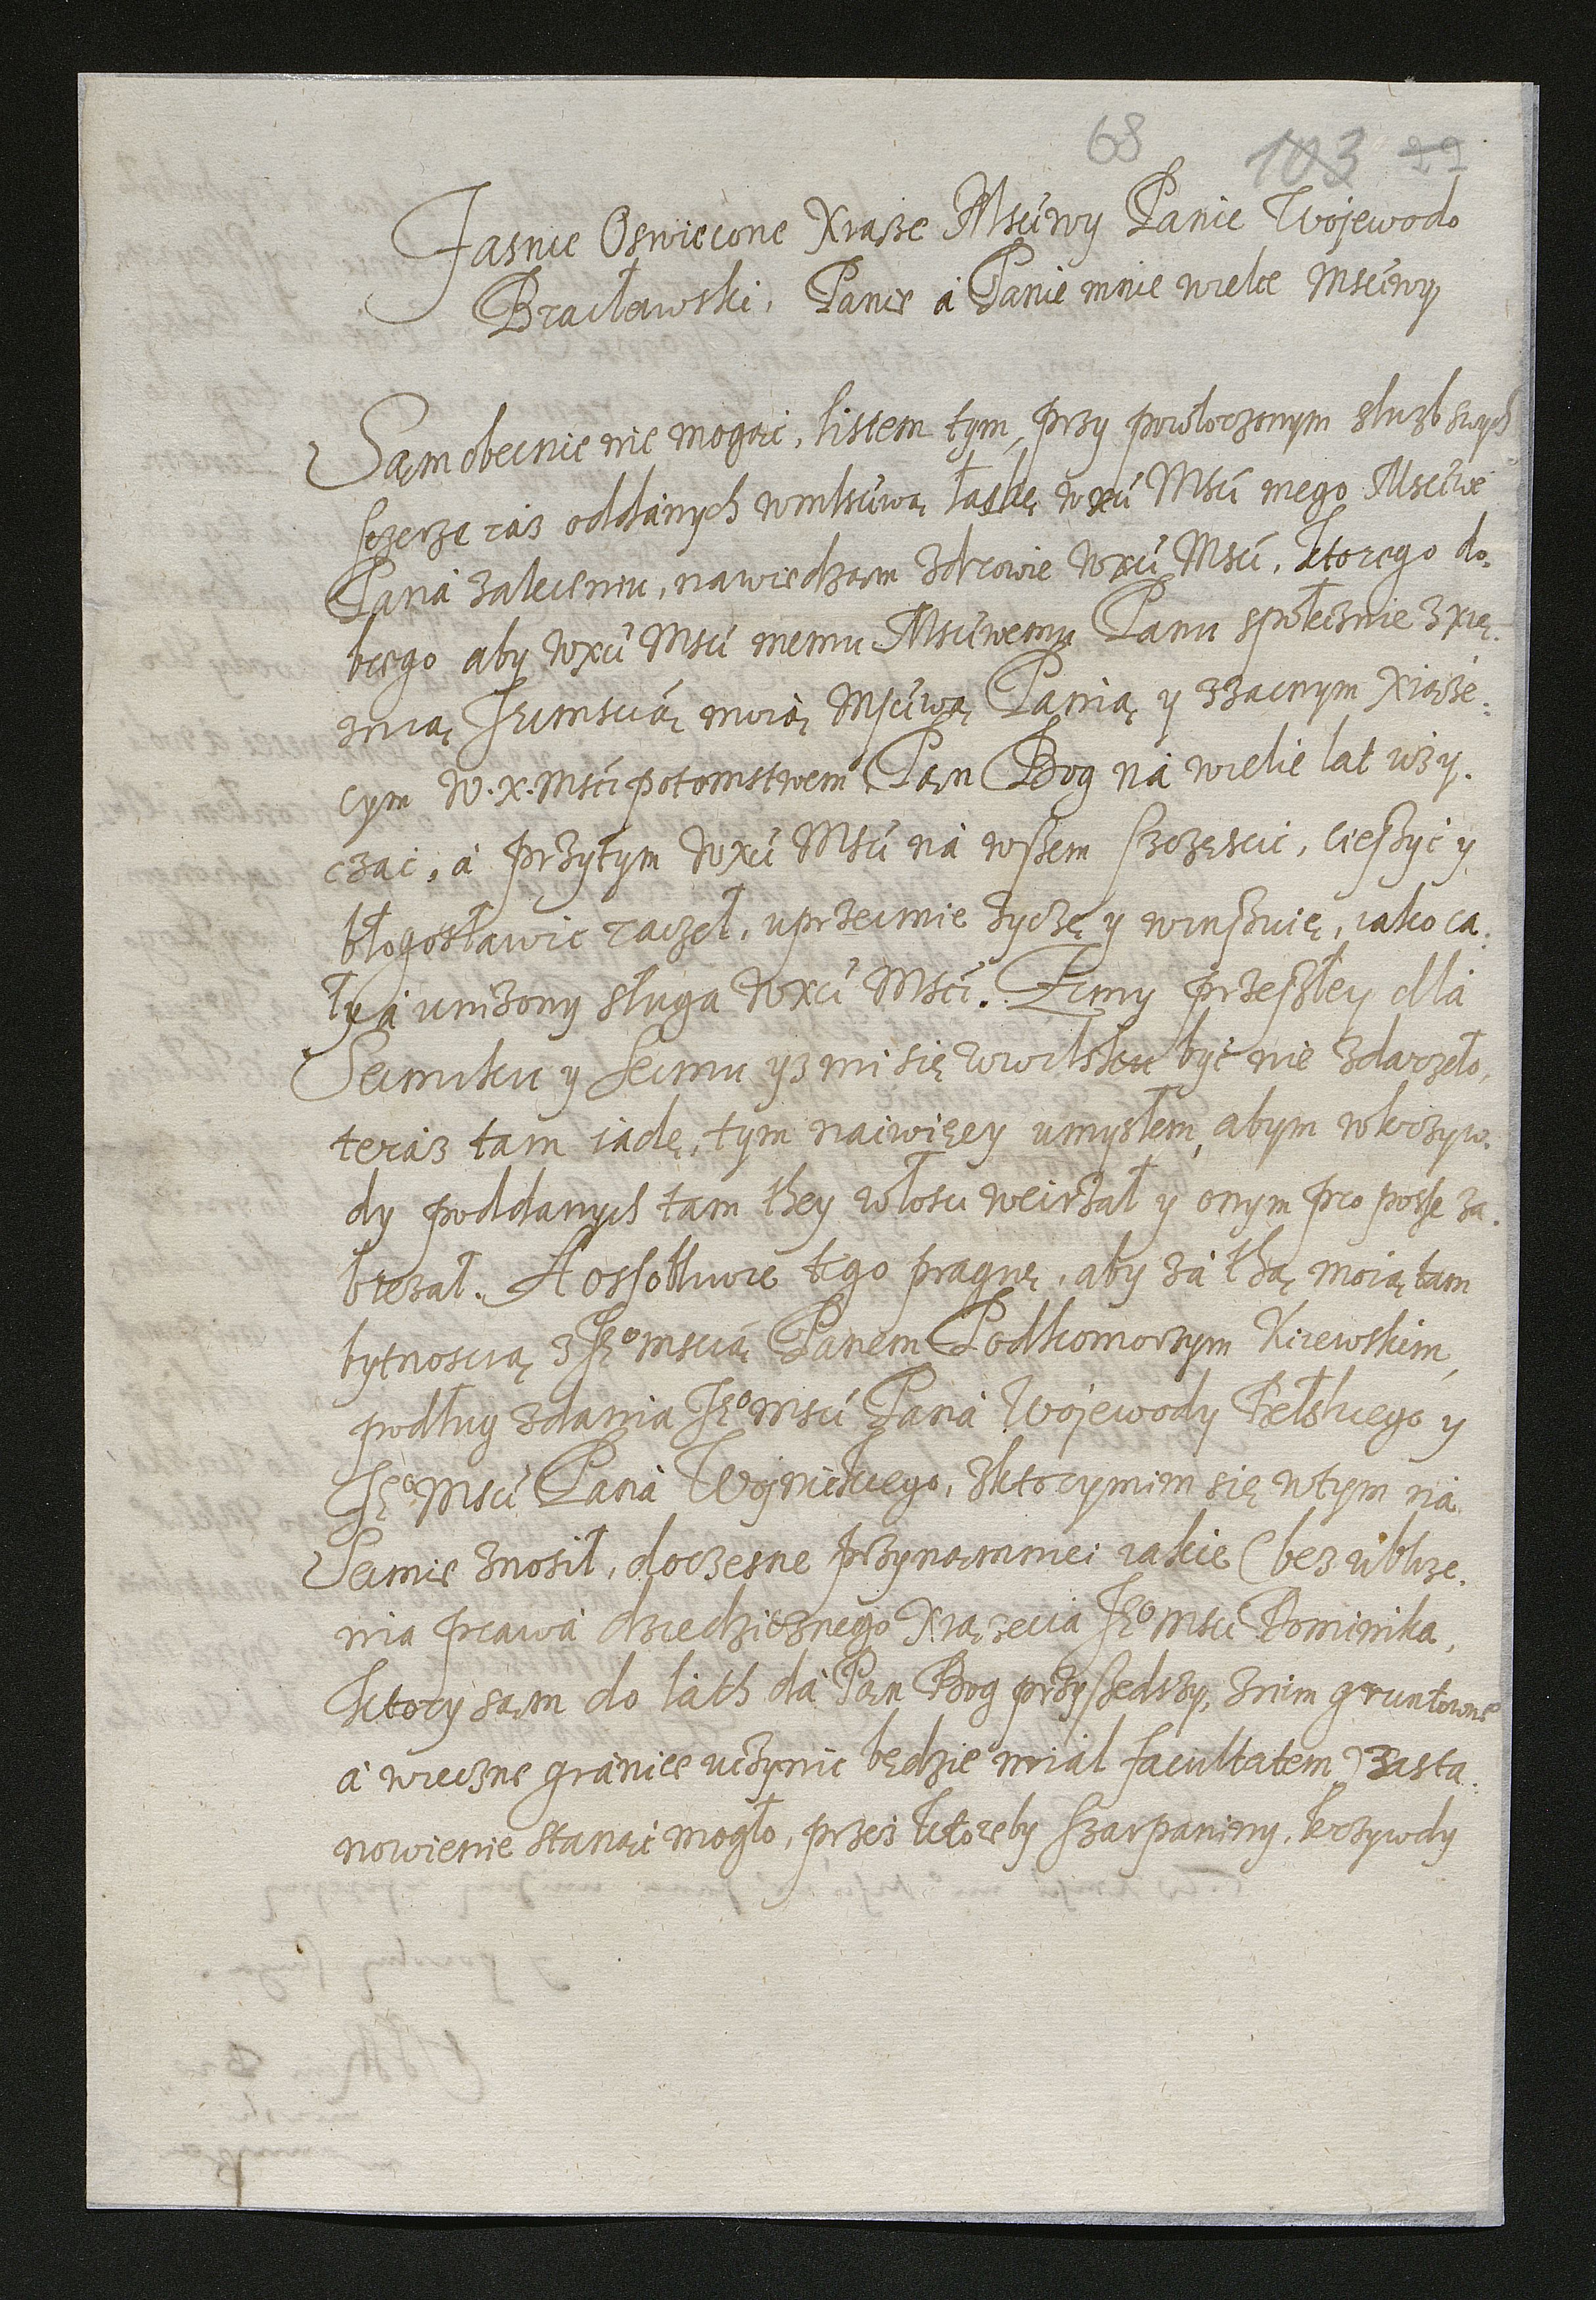 68 103 99
Jasnie Oswiecone Xiąże Mściwy Panie Wojewodo
Bracławski, Panie á Panie mnie wielce Mściwy
Sąm obecnie nie mogąc, listem tym, przy powtorzonym służb swych
szczerze raz oddánych w młściwą łaskę WXci Mści mego Mściwe
Páná zaleceniu, nawiedzam zdrowie WXci Mści, ktorego do.
brego aby WXci Mści memu Mściwemu Panu społecznie z xię.
żnią Jeimścią moią Mściwą Panią y zzacnym Xiąże.
cym W. X. Mści potomstwem Pąn Bog ná wielie lat uży.
czac, á przytym WXci Mści ná wszem szczęsciu, cieszyć y
błogosławic raczeł, uprzeimie życzę y winszuię, iako ca.
ły á uniżony sługa WXci Mści. Zimy przeszłey dlá
Seimiku y Seimu yż mi się w Wilsku być nie zdarzeło,
teráz tam iadę, tym naiwięcy umysłem, abym w krzyw.
dy poddanych tam they włosci weirzał y onym pro posse za.
bieżał. A ossobliwie tego pragnę, aby zá thą moią tam
bytnoscią z Je͠o Mścią Panem Podkomorzym Kiiewskim,
podług zdania Je͠o Mści Páná Wojewody Bełskiego y
Je͠o Mści Páná Woynickiego, z ktorymim się w tym ná
Seimie znosił, doczesne przynąmniei iakie (bez ubliże.
nia práwá dziedzicznego Xiążecia Je͠o Mści Dominika,
ktory sąm do láth dá Pąn Bog przyszedszy, z nim gruntowne
á wieczne gránice uczynic będzie miał facultatem) zasta.
nowienie stanąć mogło, przez ktoreby szarpaniny, krzywdy